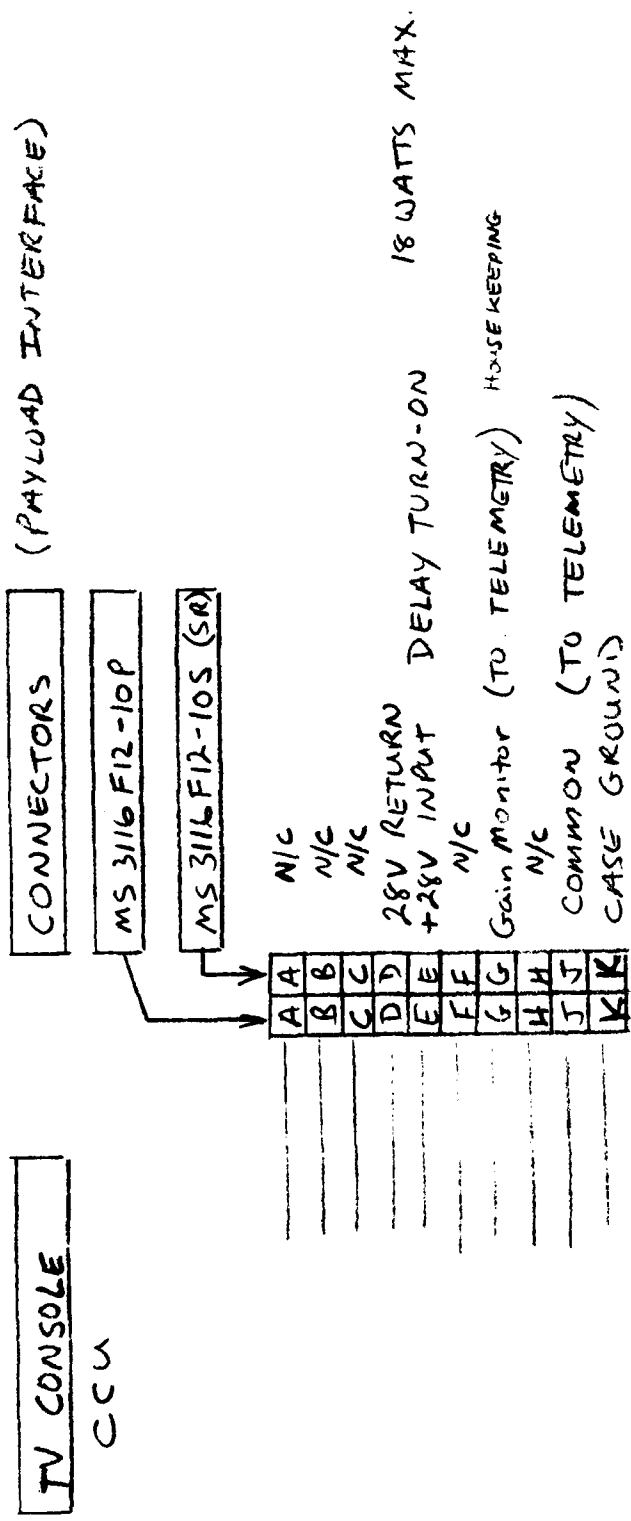 TV CONSOLE
CCU
CONNECTORS (PAYLOAD INTERFACE)
MS 3116 F12-10P
MS 3116 F12-10S (SR)
A A N/C
B B N/C
C C N/C
D D 28V RETURN
E E +28V INPUT DELAY TURN-ON 18 WATTS MAX.
F F N/C
G G Gain Monitor (TO TELEMETRY) HOUSEKEEPING
H H N/C
J J COMMON (TO TELEMETRY)
K K CASE GROUND